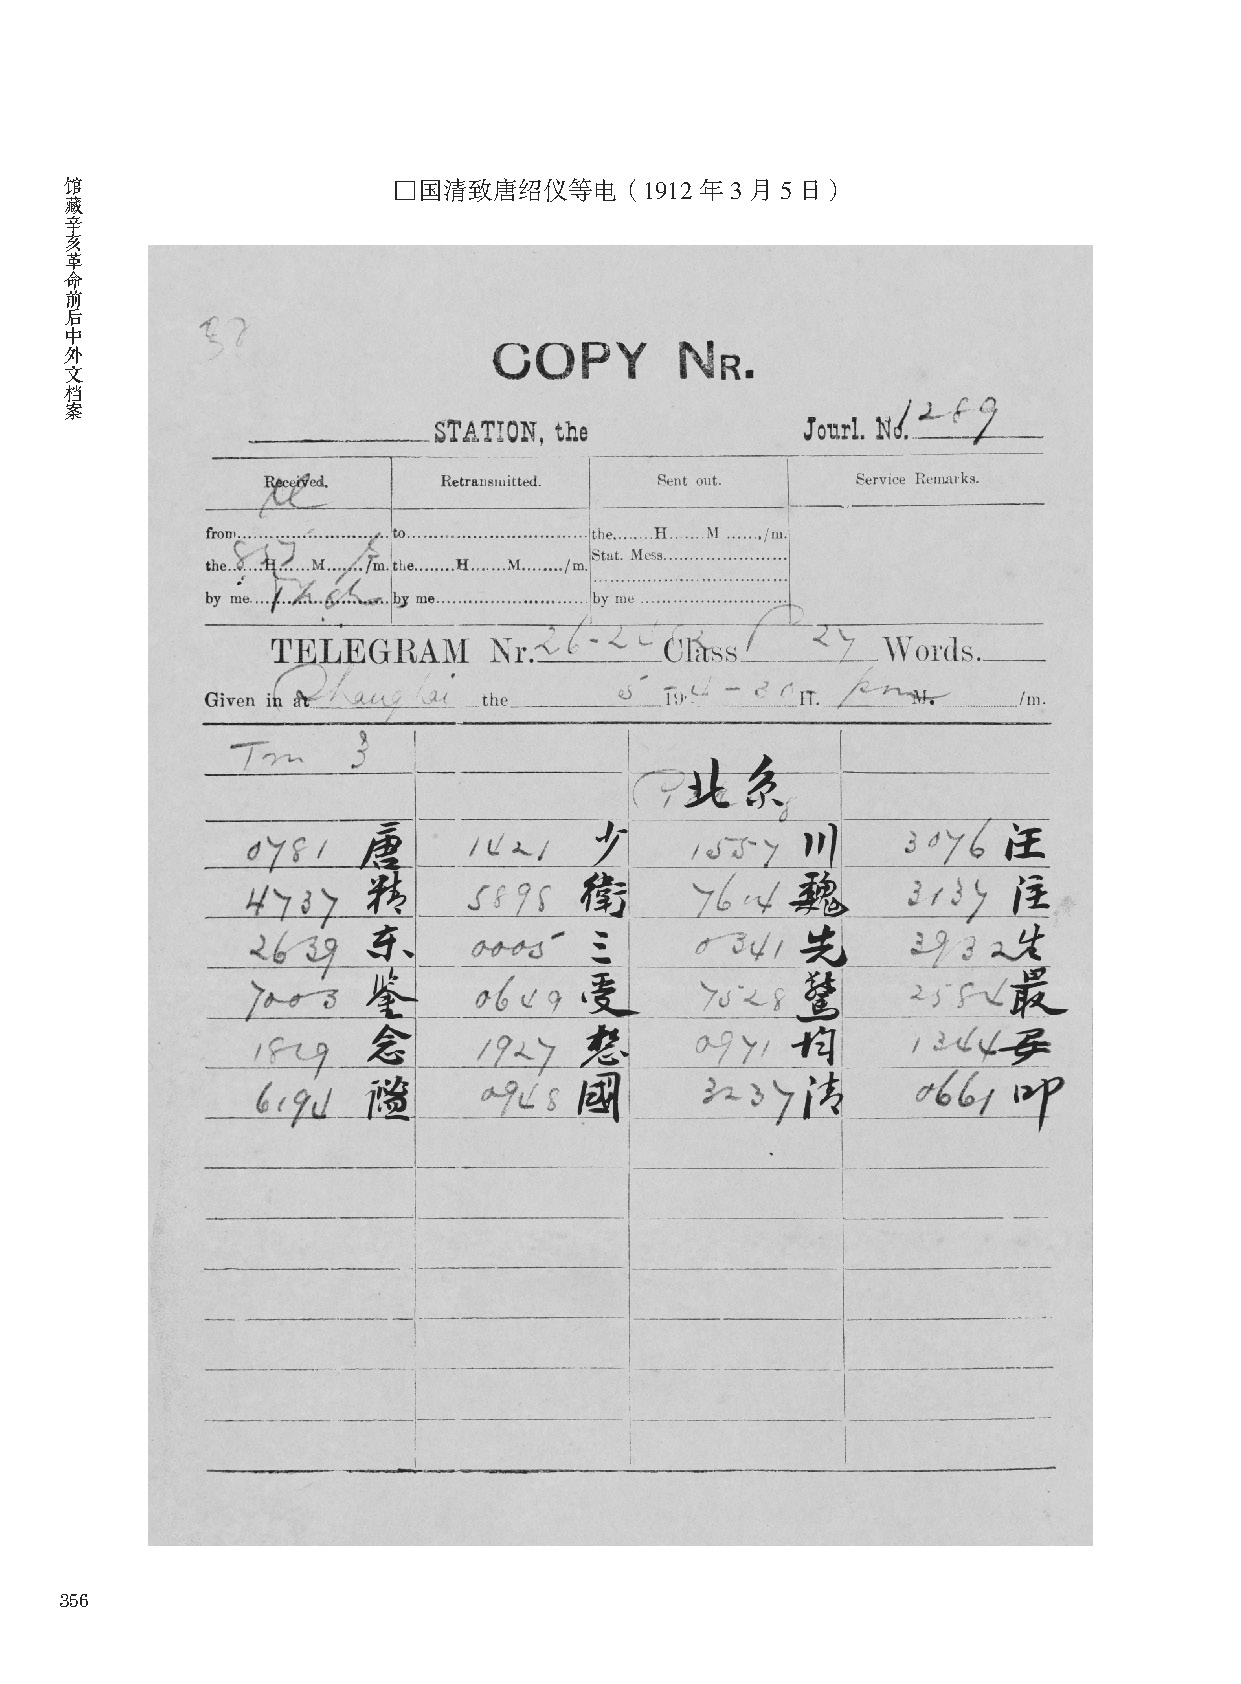 馆藏辛亥革命前后中外文档案
□国清致唐绍仪等电（1912年3月5日）
COPY NR.
STATION, the Jourl. No. 1289
Received. Retransmitted. Sent out. Service Remarks.
from to the H M /m.
the 857 H M /m. the H M /m. Stat. Mess.
by me by me by me
TELEGRAM Nr. Class 27 Words.
Given in at Shanghai the 5 - 4-30 H. pm M. /m.
Tm 3
北京
0781 唐 1421 少 1557 川 3076 汪
4737 精 5898 衛 7614 魏 3137 注
2639 东 0005 三 0341 先 3932 生
7003 鉴 0649 受 7528 驚 2584 最
1819 念 1927 愁 0971 均 1344 安
6194 谥 0948 國 3237 清 0661 叩
356